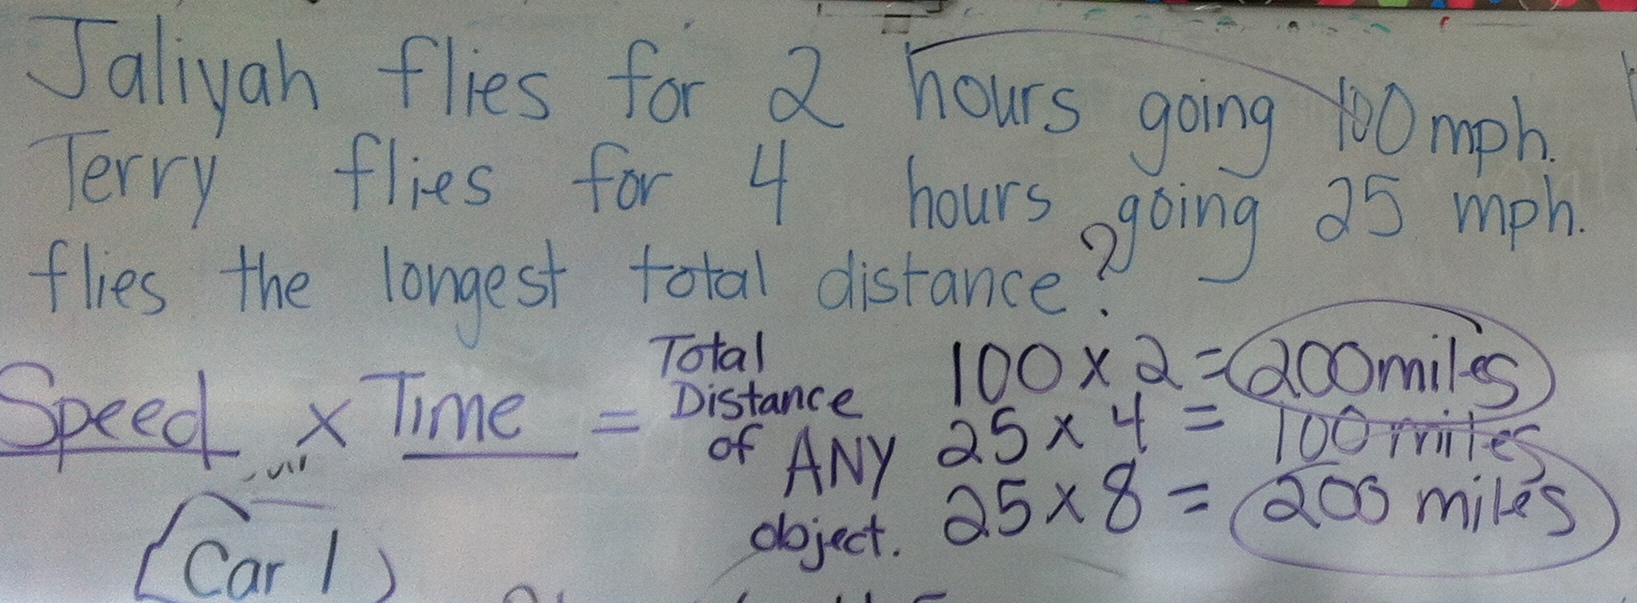 Jaliyah flies for 2 hours going 100 mph.
Terry flies for 4 hours going 25 mph.
flies the longest total distance?
Speed x Time = Total Distance of ANY object.
100 x 2 = 200 miles
25 x 4 = 100 miles
25 x 8 = 200 miles
Car 1